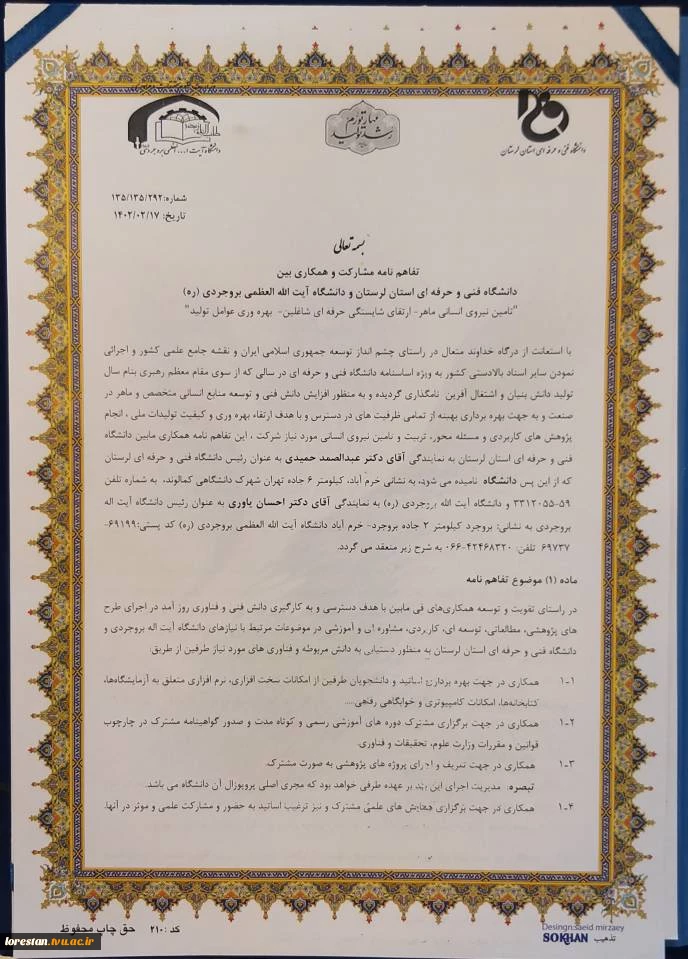 دانشگاه فنی و حرفه ای استان لرستان
مهارت، تولید
دانشگاه آیت ا... العظمی بروجردی (ره)
شماره: ۱۳۵/۱۳۵/۲۹۲
تاریخ: ۱۴۰۲/۰۲/۱۷
بسمه تعالی
تفاهم نامه مشارکت و همکاری بین
دانشگاه فنی و حرفه ای استان لرستان و دانشگاه آیت الله العظمی بروجردی (ره)
"تامین نیروی انسانی ماهر- ارتقای شایستگی حرفه ای شاغلین- بهره وری عوامل تولید"
با استعانت از درگاه خداوند متعال در راستای چشم انداز توسعه جمهوری اسلامی ایران و نقشه جامع علمی کشور و اجرائی
نمودن سایر اسناد بالادستی کشور به ویژه اساسنامه دانشگاه فنی و حرفه ای در سالی که از سوی مقام معظم رهبری بنام سال
تولید دانش بنیان و اشتغال آفرین نامگذاری گردیده و به منظور افزایش دانش فنی و توسعه منابع انسانی متخصص و ماهر در
صنعت و به جهت بهره برداری بهینه از تمامی ظرفیت های در دسترس و با هدف ارتقاء بهره وری و کیفیت تولیدات ملی ، انجام
پژوهش های کاربردی و مسئله محور، تربیت و تامین نیروی انسانی مورد نیاز شرکت ، این تفاهم نامه همکاری مابین دانشگاه
فنی و حرفه ای استان لرستان به نمایندگی آقای دکتر عبدالصمد حمیدی به عنوان رئیس دانشگاه فنی و حرفه ای لرستان
که از این پس دانشگاه نامیده می شود، به نشانی خرم آباد، کیلومتر ۶ جاده تهران شهرک دانشگاهی کمالوند، به شماره تلفن
۳۳۱۲۰۵۵-۵۹ و دانشگاه آیت الله بروجردی (ره) به نمایندگی آقای دکتر احسان یاوری به عنوان رئیس دانشگاه آیت اله
بروجردی به نشانی: بروجرد کیلومتر ۲ جاده بروجرد- خرم آباد دانشگاه آیت الله العظمی بروجردی (ره) کد پستی:۶۹۱۹۹-
۶۹۷۳۷ تلفن: ۴۲۴۶۸۳۲۰-۰۶۶ به شرح زیر منعقد می گردد.
ماده (۱) موضوع تفاهم نامه
در راستای تقویت و توسعه همکاری‌های فی مابین با هدف دسترسی و به کارگیری دانش فنی و فناوری روز آمد در اجرای طرح
های پژوهشی، مطالعاتی، توسعه ای، کاربردی، مشاوره ای و آموزشی در موضوعات مرتبط با نیازهای دانشگاه آیت اله بروجردی و
دانشگاه فنی و حرفه ای استان لرستان به منظور دستیابی به دانش مربوطه و فناوری های مورد نیاز طرفین از طریق:
۱-۱ همکاری در جهت بهره برداری اساتید و دانشجویان طرفین از امکانات سخت افزاری، نرم افزاری متعلق به آزمایشگاه‌ها،
کتابخانه‌ها، امکانات کامپیوتری و خوابگاهی رفاهی....
۱-۲ همکاری در جهت برگزاری مشترک دوره های آموزشی رسمی و کوتاه مدت و صدور گواهینامه مشترک در چارچوب
قوانین و مقررات وزارت علوم، تحقیقات و فناوری.
۱-۳ همکاری در جهت تعریف و اجرای پروژه های پژوهشی به صورت مشترک.
تبصره: مدیریت اجرای این بند بر عهده طرفی خواهد بود که مجری اصلی پروپوزال آن دانشگاه می باشد.
۱-۴ همکاری در جهت برگزاری همایش های علمی مشترک و نیز ترغیب اساتید به حضور و مشارکت علمی و موثر در آنها.
کد : ۲۱۰ حق چاپ محفوظ
Desingn:saeid mirzaey
SOKHAN تذهیب
lorestan.tvu.ac.ir